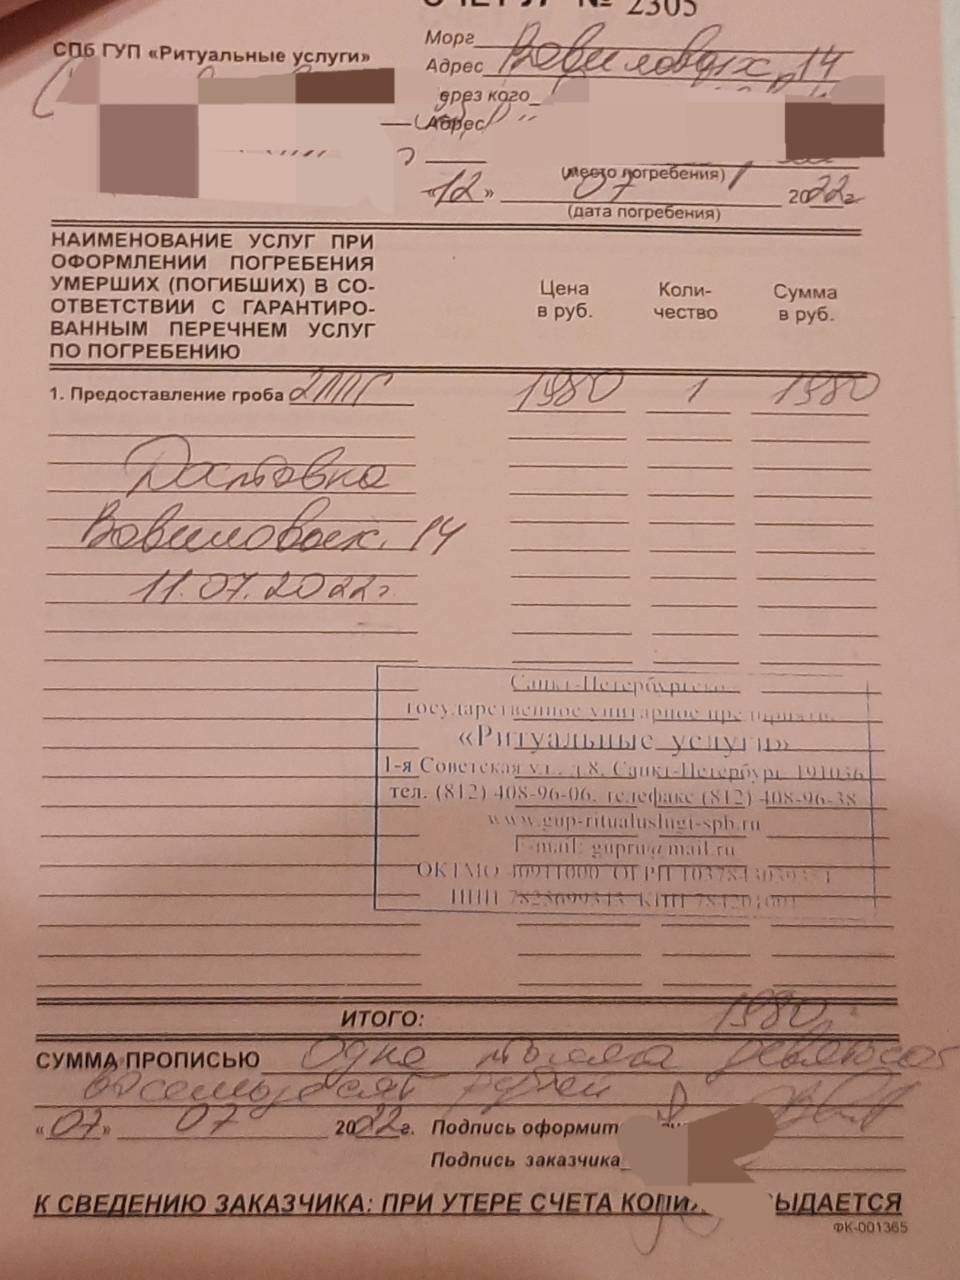 № 2305
СПб ГУП «Ритуальные услуги»
Морг
Адрес Вавиловых, 14
ерез кого
Адрес
(место погребения)
«12» 07 2022г
(дата погребения)
НАИМЕНОВАНИЕ УСЛУГ ПРИ
ОФОРМЛЕНИИ ПОГРЕБЕНИЯ
УМЕРШИХ (ПОГИБШИХ) В СО-
ОТВЕТСТВИИ С ГАРАНТИРО-
ВАННЫМ ПЕРЕЧНЕМ УСЛУГ
ПО ПОГРЕБЕНИЮ
Цена
в руб.
Коли-
чество
Сумма
в руб.
1. Предоставление гроба 1980 1 1980
Доставка
Вавиловых, 14
11.07.2022г
Санкт-Петербургско
государственное унитарное предприятие
«Ритуальные услуги»
1-я Советская ул., д.8, Санкт-Петербург, 191036
тел. (812) 408-96-06, телефакс (812) 408-96-38
www.gup-ritualuslugi-spb.ru
E-mail: gupru@mail.ru
ОКТМО 40911000 ОГРН
ИНН КПП
ИТОГО: 1980
СУММА ПРОПИСЬЮ Одна тысяча девятьсот
восемьдесят рублей
«07» 07 2022г. Подпись оформит
Подпись заказчика
К СВЕДЕНИЮ ЗАКАЗЧИКА: ПРИ УТЕРЕ СЧЕТА КОПИ ЫДАЕТСЯ
ФК-001365